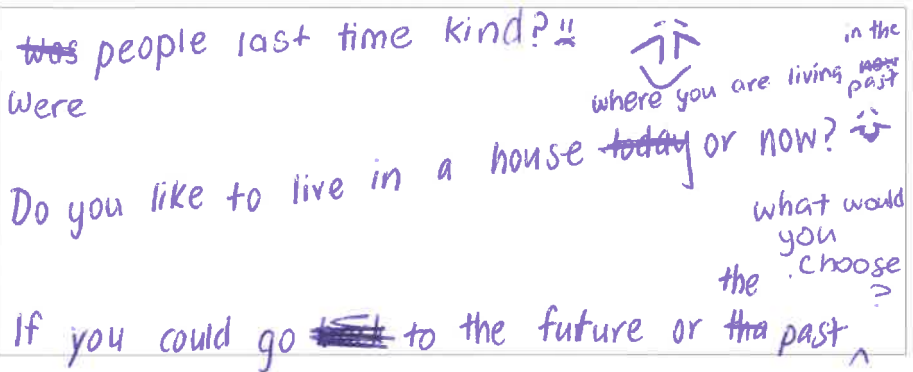 was people last time kind?
Were
in the
where you are living now past
Do you like to live in a house today or now?
what would
you
choose
?
the
If you could go to the future or tha past ^